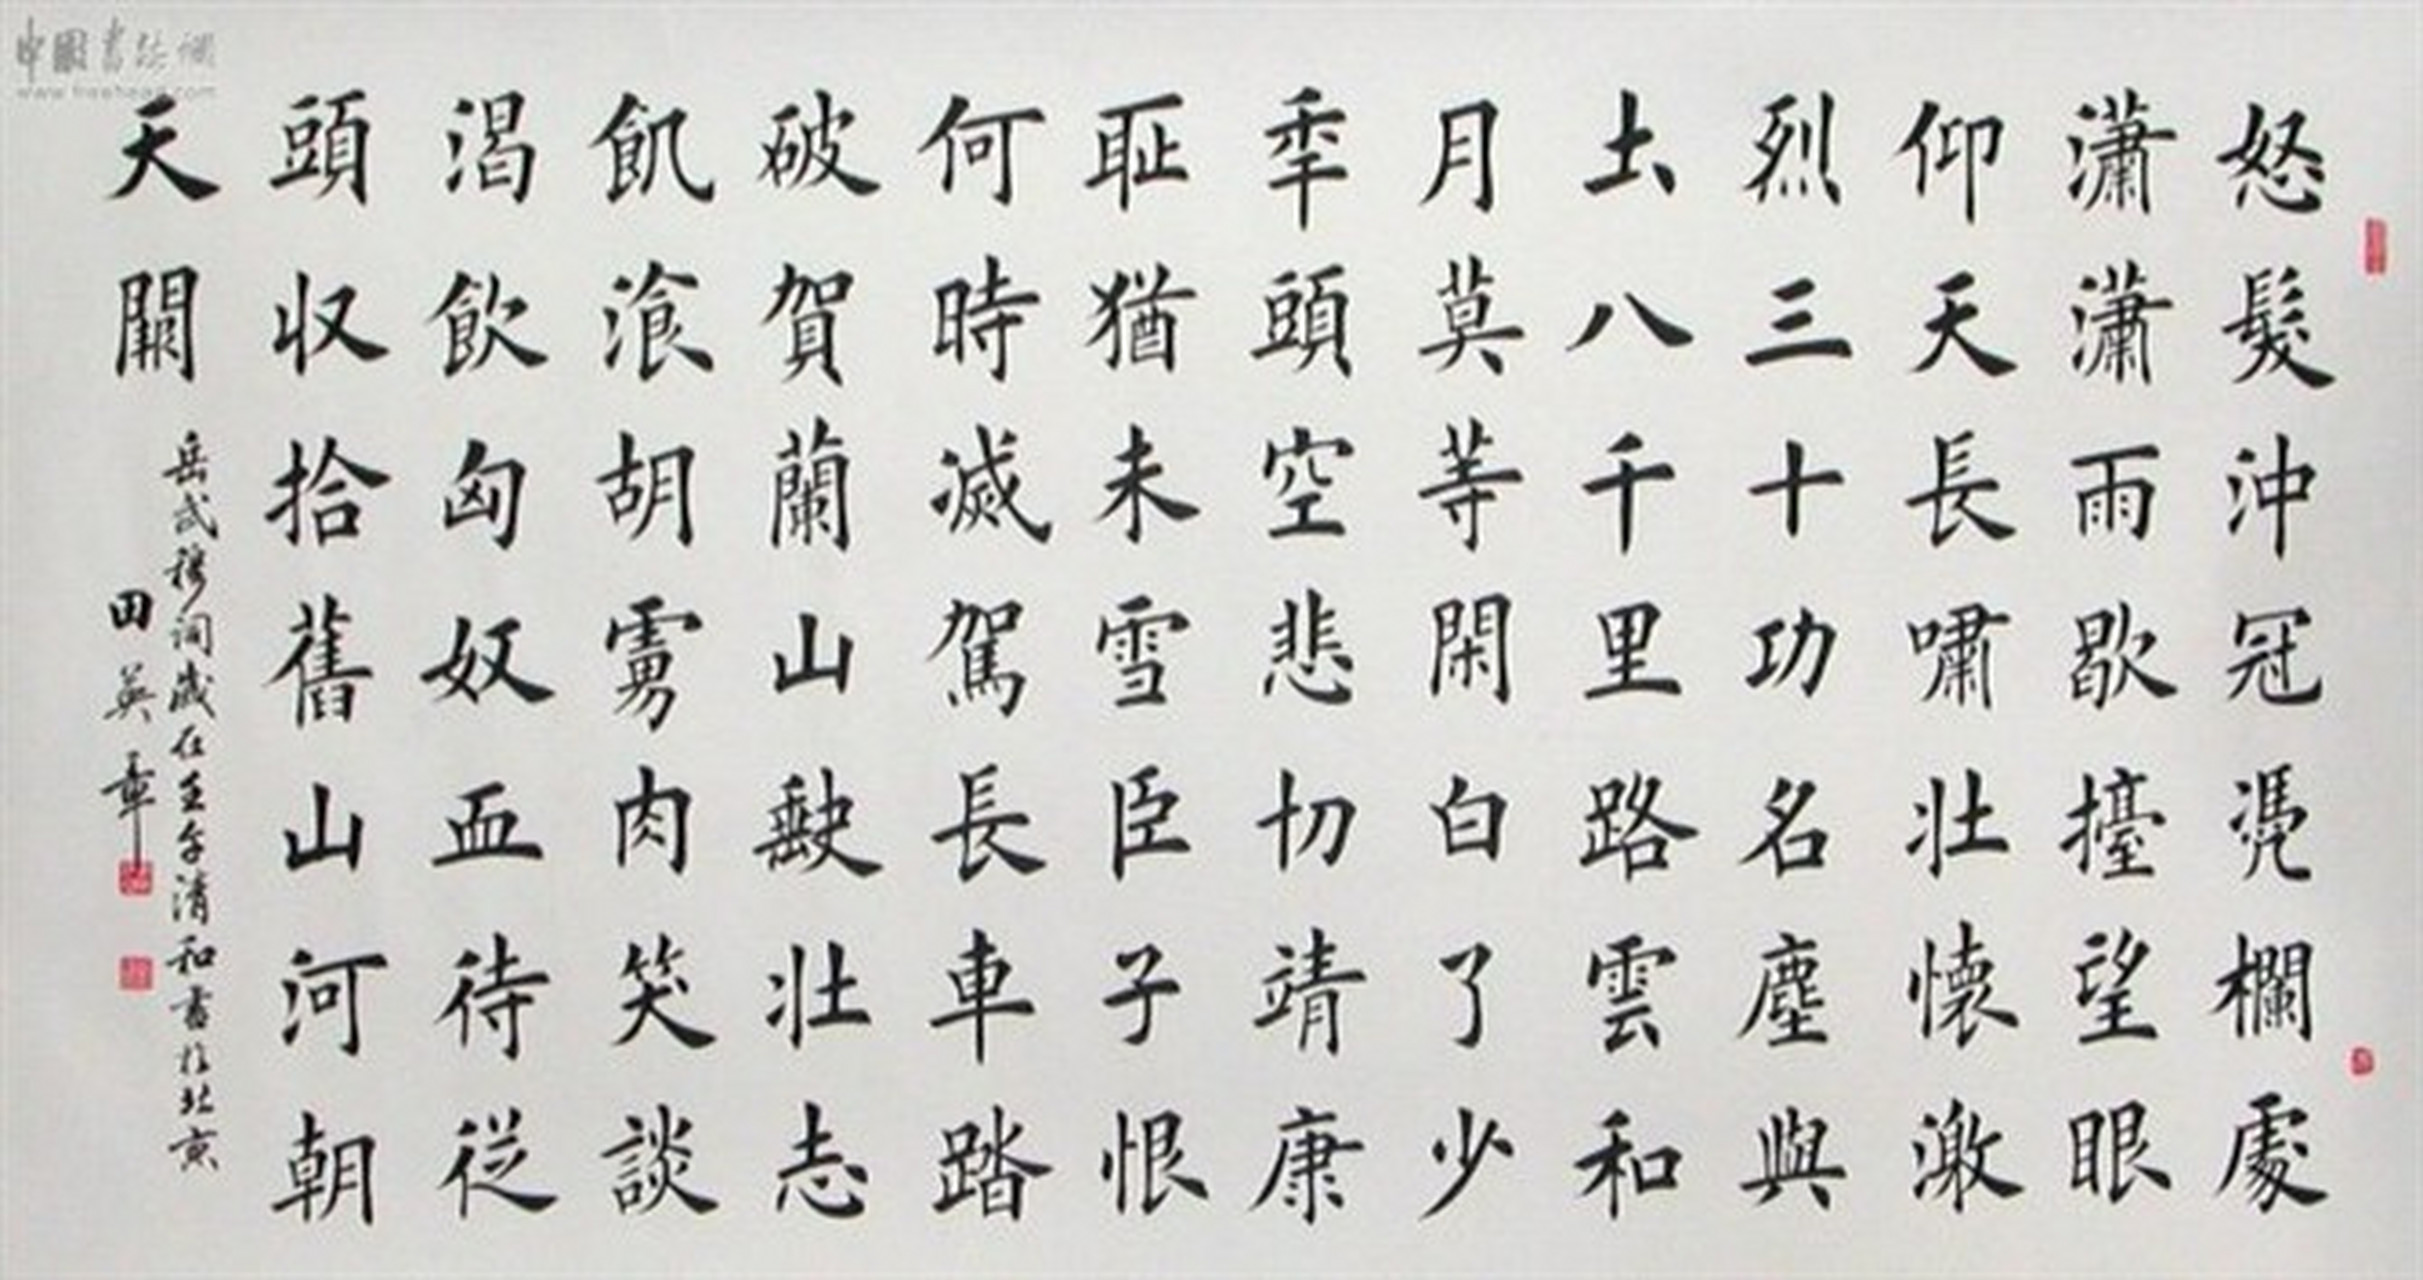 怒髮沖冠憑欄處
瀟瀟雨歇擡望眼
仰天長嘯壯懷激
烈三十功名塵與
土八千里路雲和
月莫等閑白了少
年頭空悲切靖康
恥猶未雪臣子恨
何時滅駕長車踏
破賀蘭山缺壯志
飢飡胡虜肉笑談
渴飲匈奴血待從
頭收拾舊山河朝
天闕
岳武穆詞歲在壬午清和書於北京
田英章
中國書法網